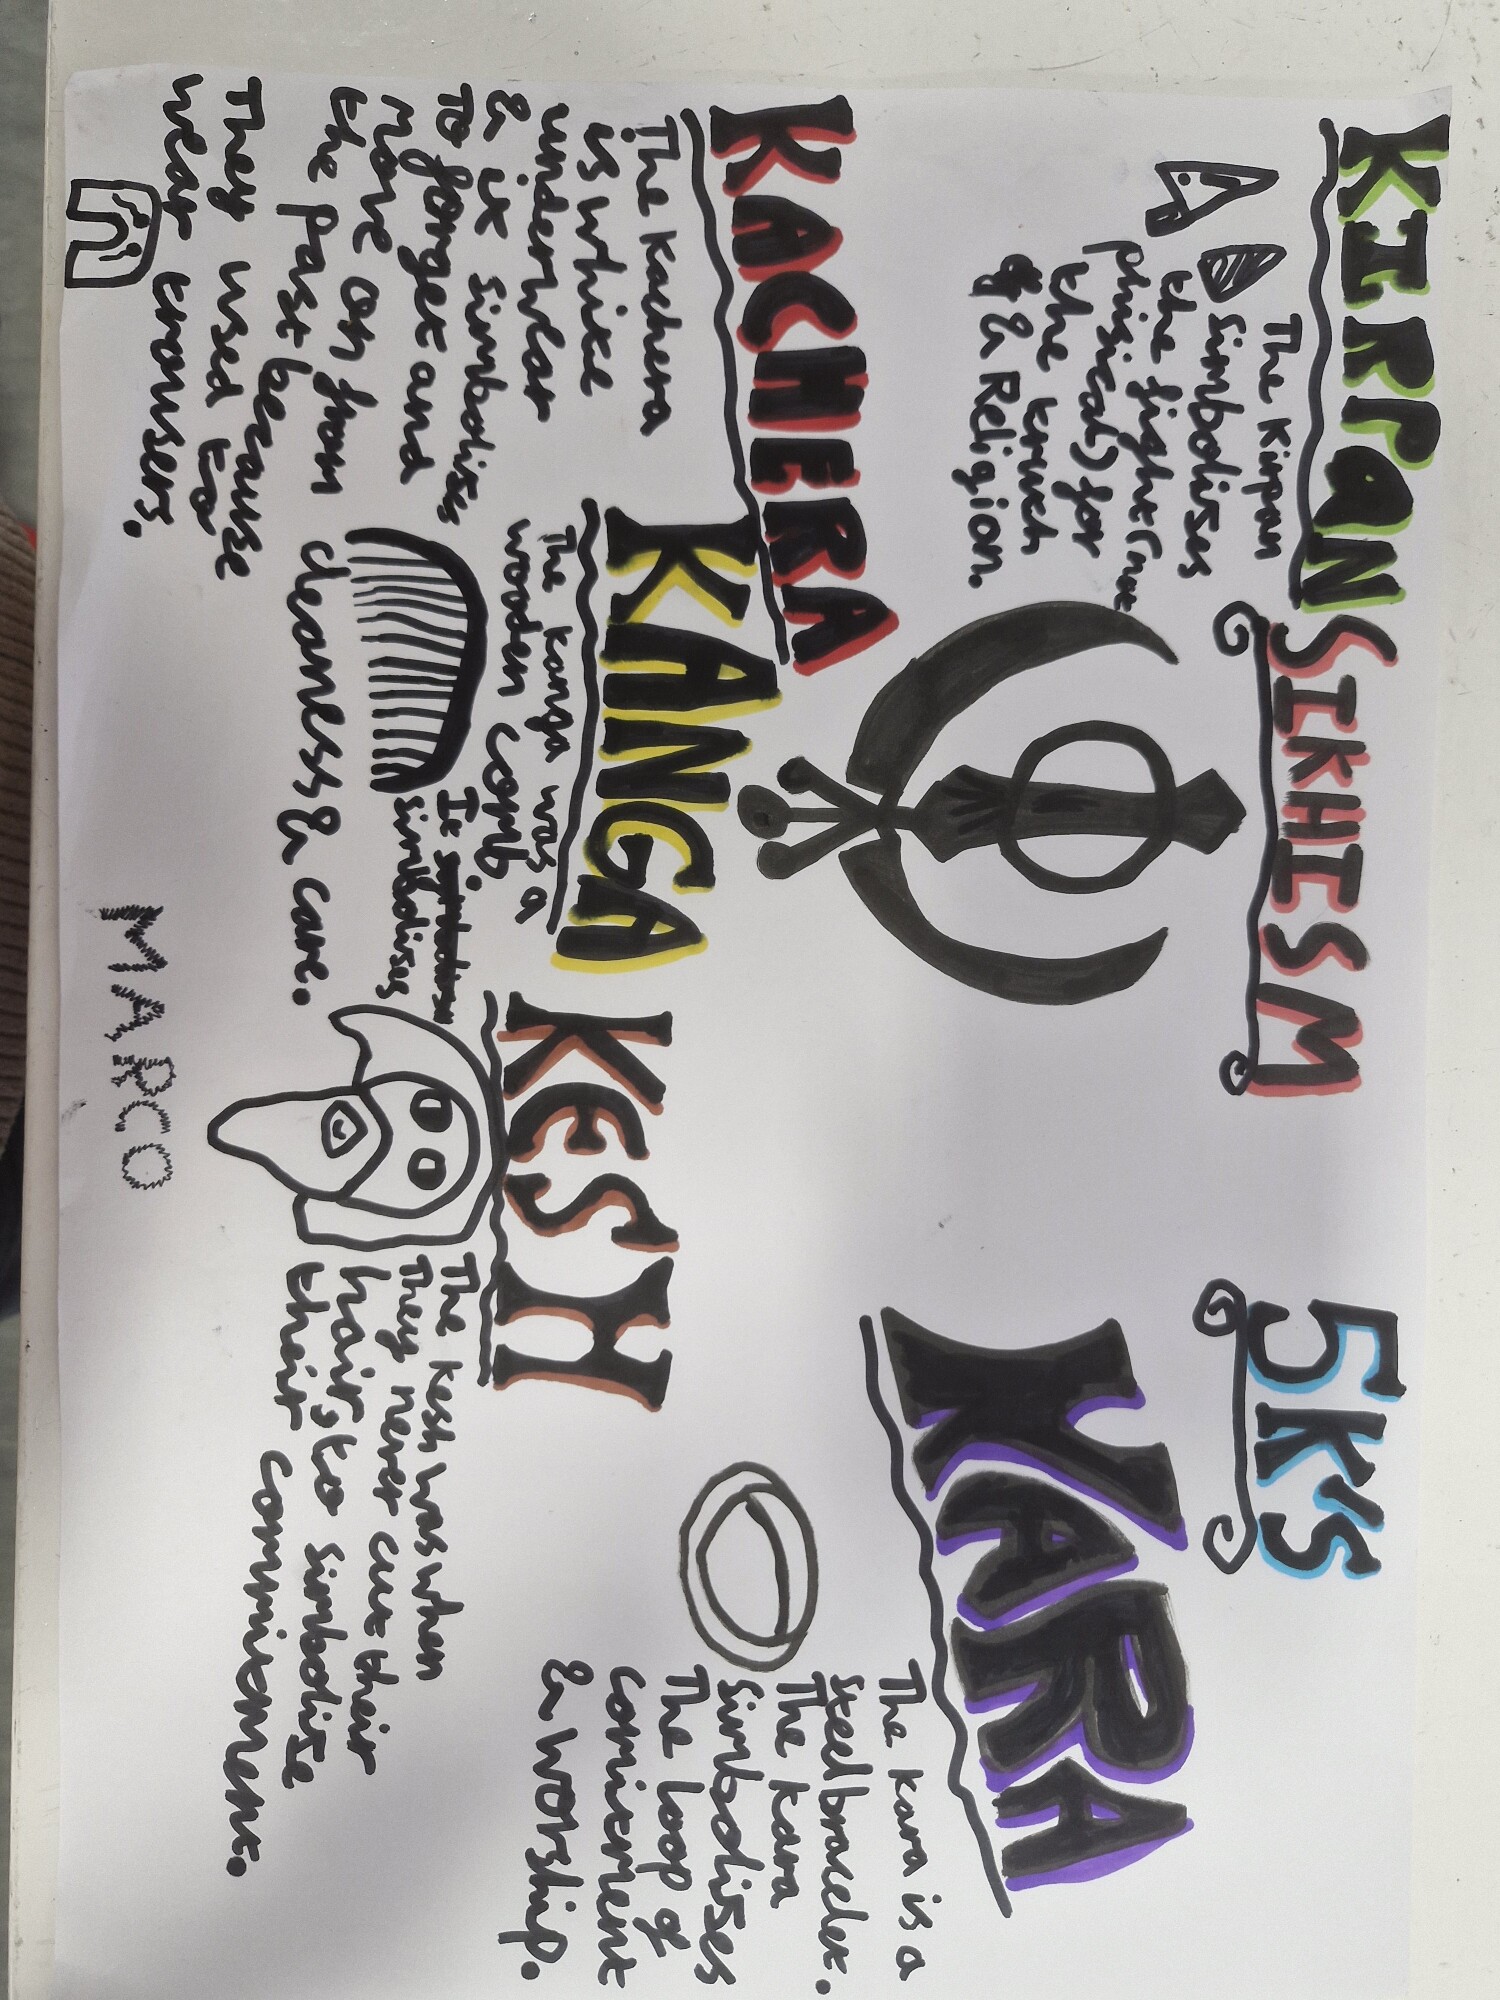 KIRPAN
The Kirpan
Simbolises
the fight (not
phisical) for
the truth
& Religion.
SIKHISM
5K'S
KARA
The Kara is a
steel bracelet.
The Kara
Simbolises
The loop of
comitment
& worship.
KACHERA
The Kachera
is white
underwear
& it simbolises
To forget and
move on from
the past because
They used to
wear trousers.
KANGA
The Kanga was a
wooden comb
It
simbolises
cleaness & care.
KESH
The Kesh was when
They never cut their
hair, to simbolise
their commitement.
MARCO